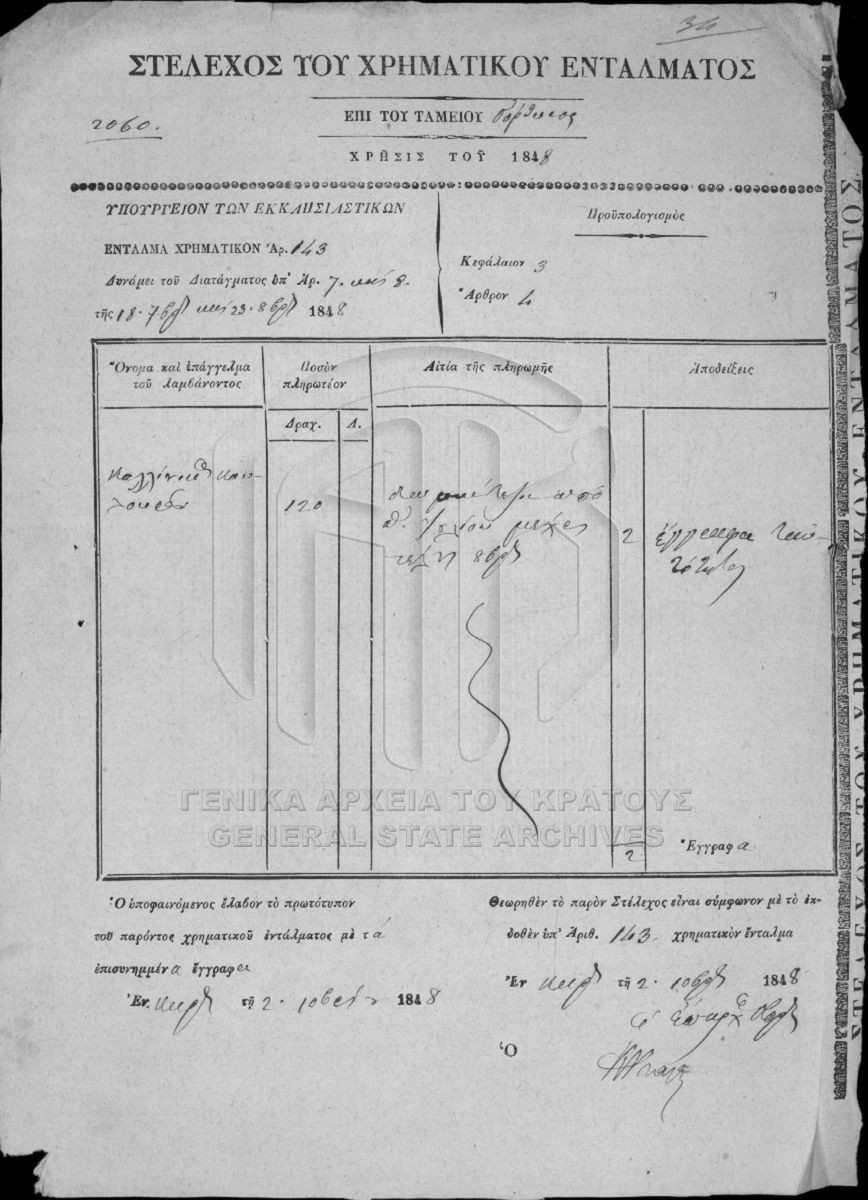 34
ΣΤΕΛΕΧΟΣ ΤΟΥ ΧΡΗΜΑΤΙΚΟΥ ΕΝΤΑΛΜΑΤΟΣ
2060.
ΕΠΙ ΤΟΥ ΤΑΜΕΙΟΥ
ΧΡΗΣΙΣ ΤΟΥ 1848
ΥΠΟΥΡΓΕΙΟΝ ΤΩΝ ΕΚΚΛΗΣΙΑΣΤΙΚΩΝ
ΕΝΤΑΛΜΑ ΧΡΗΜΑΤΙΚΟΝ Ἀρ. 143
Δυνάμει τοῦ Διατάγματος ὑπ' Ἀρ. 7. καὶ 8.
τῆς 18. 7βρ καὶ 23. 8βρ 1848
Προϋπολογισμὸς
Κεφάλαιον 3
Ἄρθρον 4
Ὄνομα καὶ ἐπάγγελμα τοῦ λαμβάνοντος
Ποσὸν πληρωτέον
Αἰτία τῆς πληρωμῆς
Ἀποδείξεις
Δραχ. Λ.
120
ἀπὸ
Ἰουλίου μέχρι
8βρ
2 ἔγγραφα
2 Ἔγγραφα
Ὁ ὑποφαινόμενος ἔλαβον τὸ πρωτότυπον
τοῦ παρόντος χρηματικοῦ ἐντάλματος μὲ τὰ
ἐπισυνημμένα ἔγγραφα
Ἐν τῇ 2. 1848
Θεωρηθὲν τὸ παρὸν Στέλεχος εἶναι σύμφωνον μὲ τὸ ἐκ-
δοθὲν ὑπ' Ἀριθ. 143. χρηματικὸν ἔνταλμα
Ἐν τῇ 2. 10βρ 1848
ὁ Ἔπαρχ
Ὁ
ΓΕΝΙΚΑ ΑΡΧΕΙΑ ΤΟΥ ΚΡΑΤΟΥΣ
GENERAL STATE ARCHIVES
ΣΤΕΛΕΧΟΣ ΤΟΥ ΧΡΗΜΑΤΙΚΟΥ ΕΝΤΑΛΜΑΤΟΣ